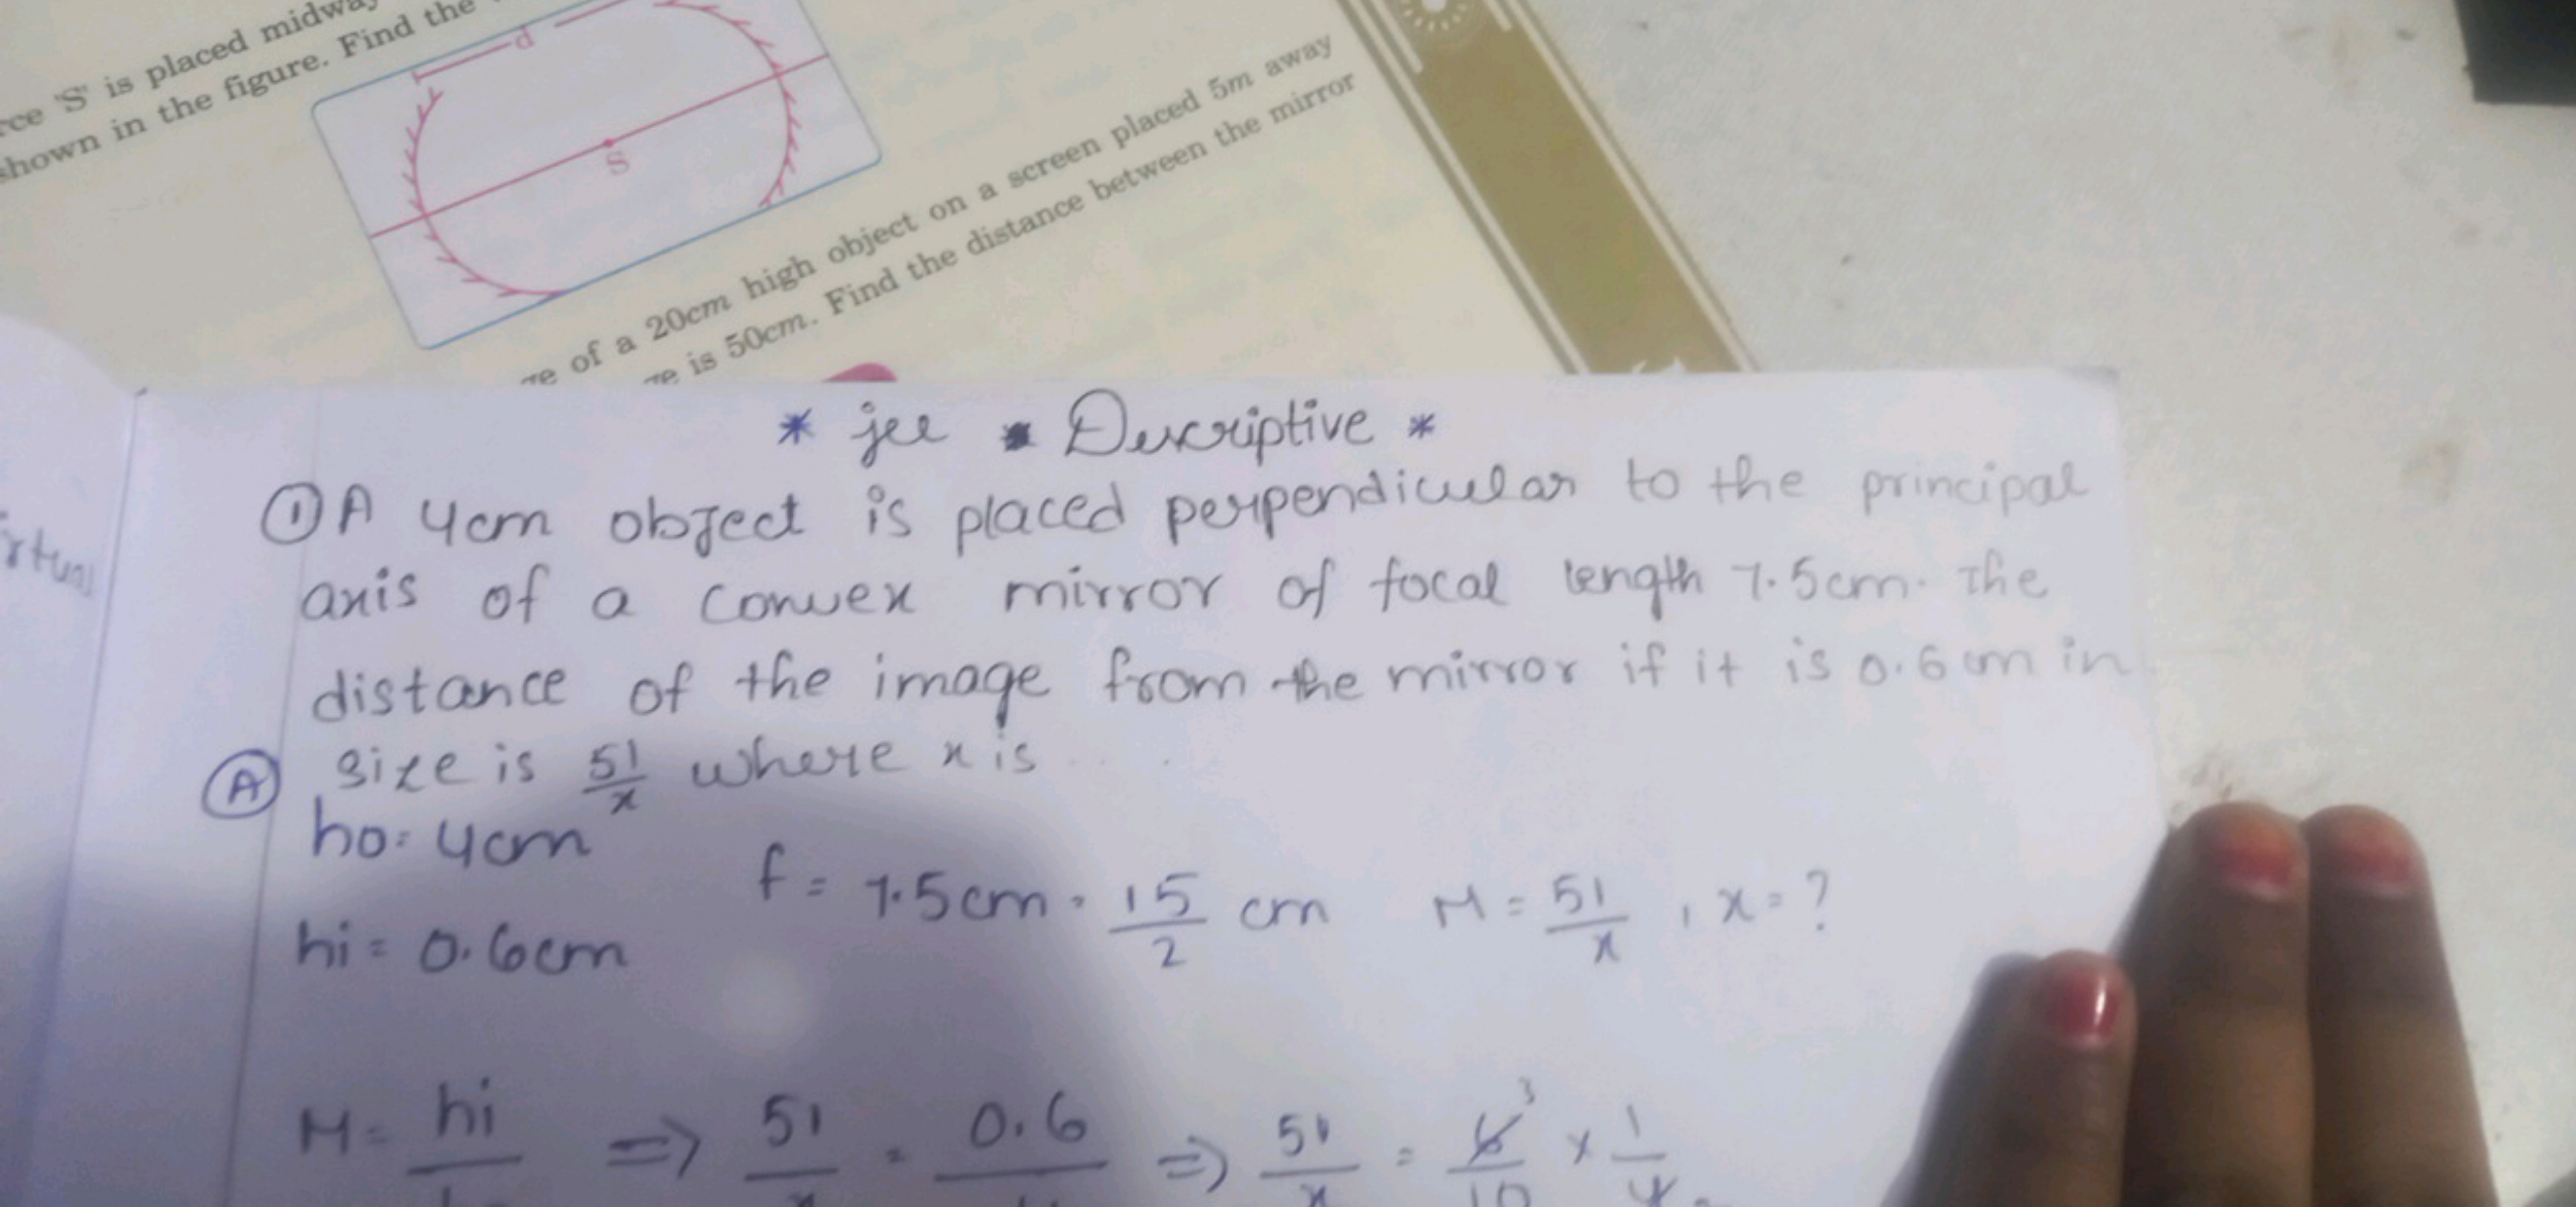 'S' is placed midway
shown in the figure. Find the
d
S
of a 20cm high object on a screen placed 5m away
is 50cm. Find the distance between the mirror
* jee * Descriptive *
① A 4cm object is placed perpendicular to the principal
axis of a convex mirror of focal length 7.5cm. The
distance of the image from the mirror if it is 0.6cm in
size is 51/x where x is ...
Ⓐ
ho = 4cm
f = 7.5cm = 15/2 cm M = 51/x , x = ?
hi = 0.6cm
M = hi => 51/x = 0.6 => 51/x = 6 3/10 x 1/4